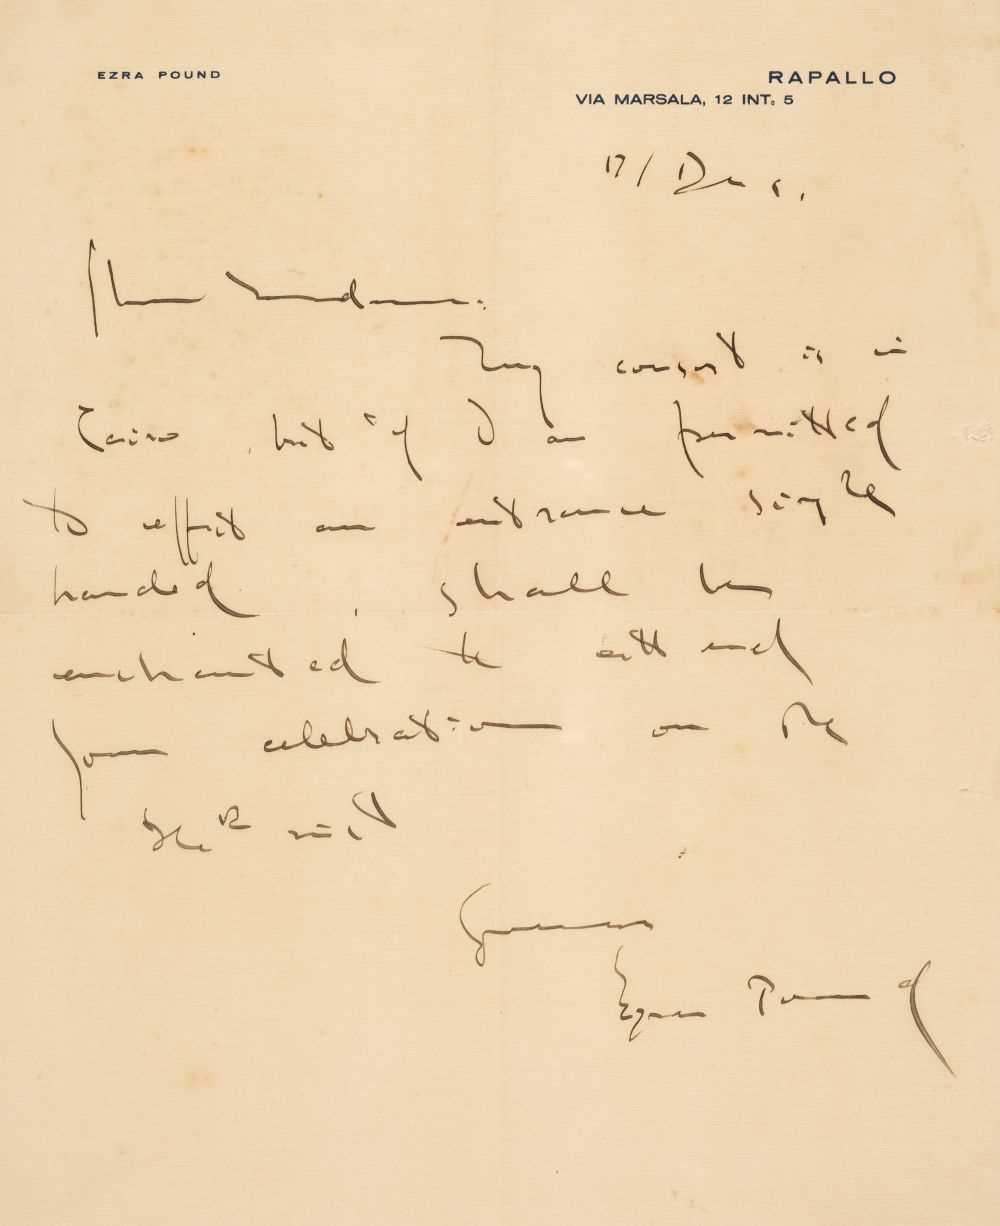 EZRA POUND
RAPALLO
VIA MARSALA, 12 INT. 5
17/ Dec.
Madame:
My consort is in
Cairo but if I am permitted
to effect an entrance single
handed, shall be
enchanted to attend
your celebration on the
inst
Ezra Pound